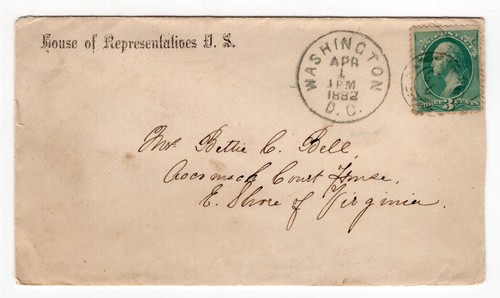 House of Representatives U. S.
WASHINGTON
APR
1
1 PM
1882
D. C.
3
Bettie C. Bell,
Accomack Court House,
E. Shore of Virginia.